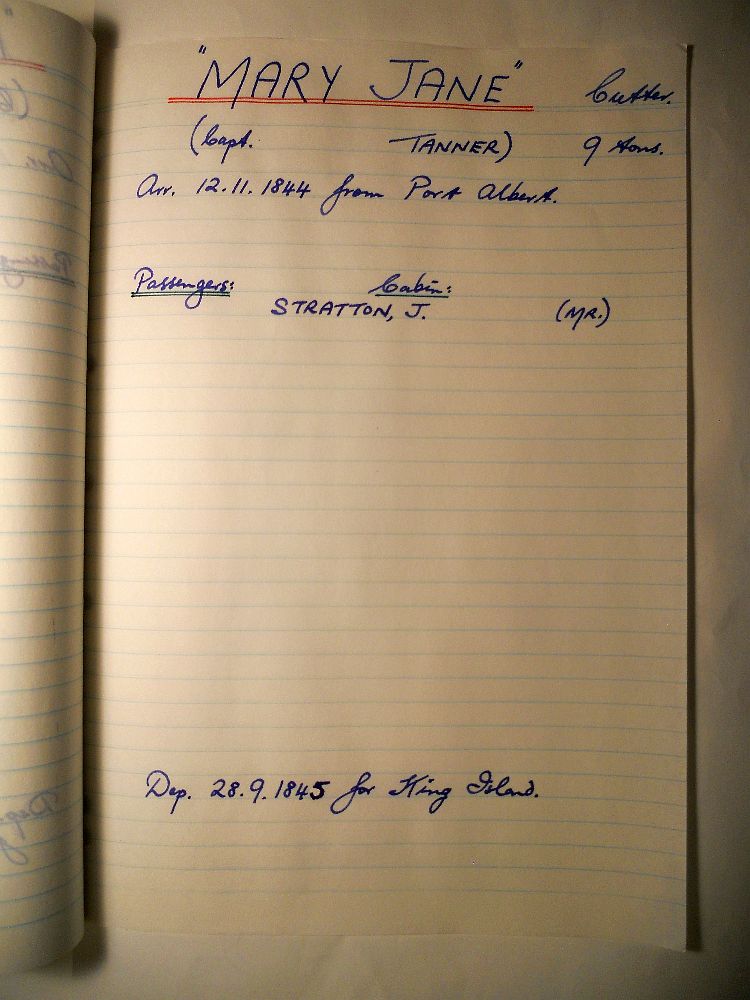 "MARY JANE" Cutter.
(Capt. TANNER) 9 tons.
Arr. 12.11.1844 from Port Albert.
Passengers: Cabin:
STRATTON, J. (MR.)
Dep. 28.9.1845 for King Island.